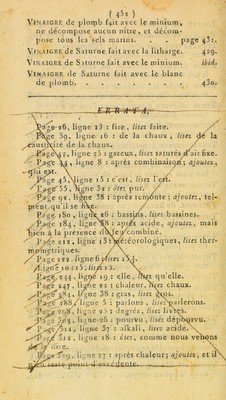 ( 432 )
VINAIGRE de plomb fait avec le minium,
ne décompose aucun nitre, et décom-
pose tous les sels marins. . . page 431.
VINAIGRE de Saturne fait avec la litharge. 429.
VINAIGRE de Saturne fait avec le minium. ibid.
VINAIGRE de Saturne fait avec le blanc
de plomb. . . . . . . 430.
ERRATA.
Page 26, ligne 18 : fire, lisez faire.
Page 39, ligne 16 : de la chaux, lisez de la
causticité de la chaux.
Page 42, ligne 23 : gazeux, lisez saturés d'air fixe.
Page 44, ligne 8 : après combinaison; ajoutez,
qui est.
Page 45, ligne 15 : c'est, lisez l'est.
Page 55, ligne 32 : ôtez pur.
Page 92, ligne 38 : après remonte; ajoutez, tel-
lement qu'il se fixe.
Page 180, ligne 26 : bassins, lisez bassines.
Page 184, ligne 38 : après acide, ajoutez, mais
bien à la présence du fer combiné.
Page 212, ligne 13 : météorologiques, lisez ther-
mométriques.
Page 222, ligne 6 : lisez 153.
ligne 10 : 15; lisez 13.
Page 244, ligne 19 : elle, lisez qu'elle.
Page 247, ligne 22 : chaleur, lisez chaux.
Page 284, ligne 38 : gras, lisez gros.
Page 288, ligne 5 : parlons, lisez parlerons.
Page 298, ligne 25 : degrés, lisez livres.
Page 304, ligne 26 : pourvu, lisez dépourvu.
Page 311, ligne 37 : alkali, lisez acide.
Page 312, ligne 18 : ôtez, comme nous venons
de le dire.
ligne 27 : après chaleur; ajoutez, et il
n'en reste point d'excédente.